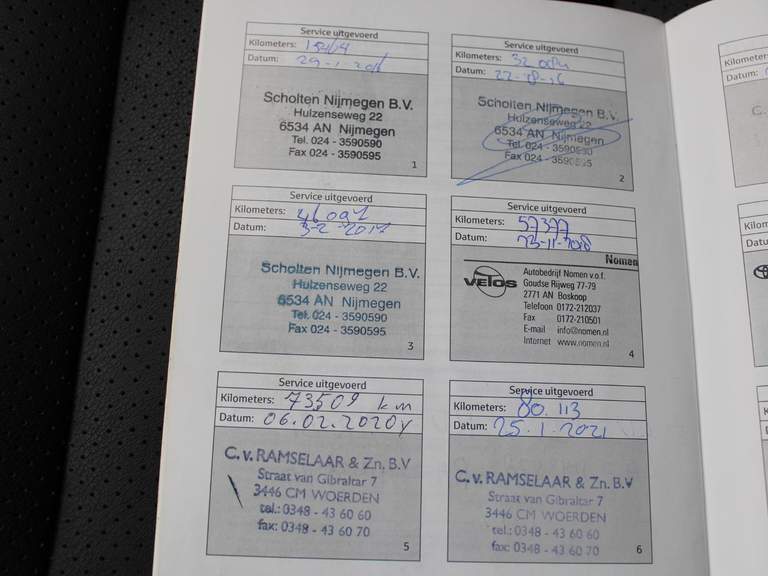 Service uitgevoerd
Kilometers:
Datum: 29-1-
Scholten Nijmegen B.V.
Hulzenseweg 22
6534 AN Nijmegen
Tel. 024 - 3590590
Fax 024 - 3590595
1
Service uitgevoerd
Kilometers:
Datum: 22-8-16
Scholten Nijmegen B.V.
Hulzenseweg 22
6534 AN Nijmegen
Tel. 024 - 3590590
Fax 024 - 3590595
2
Service uitgevoerd
Kilometers: 46091
Datum: 3-2-2017
Scholten Nijmegen B.V.
Hulzenseweg 22
6534 AN Nijmegen
Tel. 024 - 3590590
Fax 024 - 3590595
3
Service uitgevoerd
Kilometers: 57377
Datum: 23-11-2018
Nomen
VELOS
Autobedrijf Nomen v.o.f.
Goudse Rijweg 77-79
2771 AN Boskoop
Telefoon 0172-212037
Fax 0172-210501
E-mail info@nomen.nl
Internet www.nomen.nl
4
Service uitgevoerd
Kilometers: 73509 km
Datum: 06.02.2020
C.v. RAMSELAAR & Zn. B.V
Straat van Gibraltar 7
3446 CM WOERDEN
tel.: 0348 - 43 60 60
fax: 0348 - 43 60 70
5
Service uitgevoerd
Kilometers: 80.113
Datum: 25.1.2021
C.v. RAMSELAAR & Zn. B.V
Straat van Gibraltar 7
3446 CM WOERDEN
tel.: 0348 - 43 60 60
fax: 0348 - 43 60 70
6
Kilometers
Datum:
C.